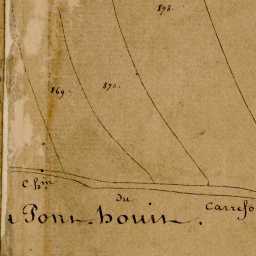 198.
169.
170.
Ch.in
du
Carrefo
Pont-houin.